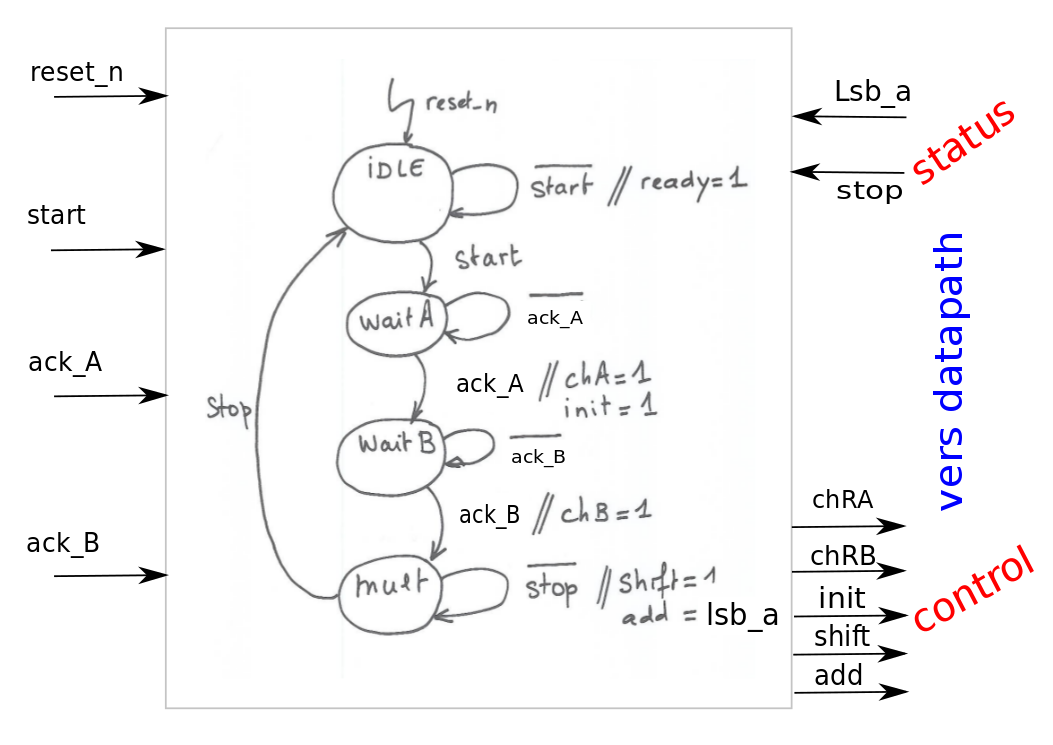 reset_n
start
ack_A
ack_B
reset_n
iDLE
start // ready=1
start
wait A
ack_A
ack_A // chA=1
init = 1
Stop
wait B
ack_B
ack_B // chB=1
mult
stop // Shift=1
add = lsb_a
Lsb_a
stop
status
vers datapath
chRA
chRB
init
shift
add
control